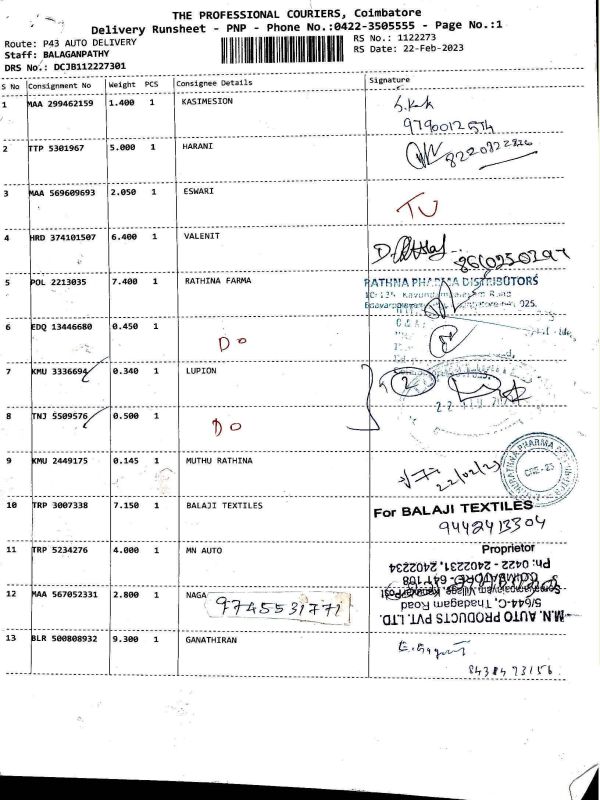 THE PROFESSIONAL COURIERS, Coimbatore
Delivery Runsheet - PNP - Phone No.:0422-3505555 - Page No.:1
Route: P43 AUTO DELIVERY
RS No.: 1122273
Staff: BALAGANPATHY
RS Date: 22-Feb-2023
DRS No.: DCJB112227301
S No Consignment No Weight PCS Consignee Details Signature
1 MAA 299462159 1.400 1 KASIMESION
2 TTP 5301967 5.000 1 HARANI
3 MAA 569609693 2.050 1 ESWARI
TU
4 HRD 374101507 6.400 1 VALENIT
5 POL 2213035 7.400 1 RATHINA FARMA
RATHNA PHARMA DISTRIBUTORS
6 EDQ 13446680 0.450 1
Do
7 KMU 3336694 0.340 1 LUPION
2
8 TNJ 5509576 0.500 1
Do
9 KMU 2449175 0.145 1 MUTHU RATHINA
22/02/23
10 TRP 3007338 7.150 1 BALAJI TEXTILES
For BALAJI TEXTILES
9442413304
Proprietor
11 TRP 5234276 4.000 1 MN AUTO
M.N. AUTO PRODUCTS PVT. LTD.
5/644-C, Thadagam Road
COIMBATORE - 641 108
Ph: 0422 - 2402231, 2402234
12 MAA 567052331 2.800 1 NAGA
9745531771
13 BLR 500808932 9.300 1 GANATHIRAN